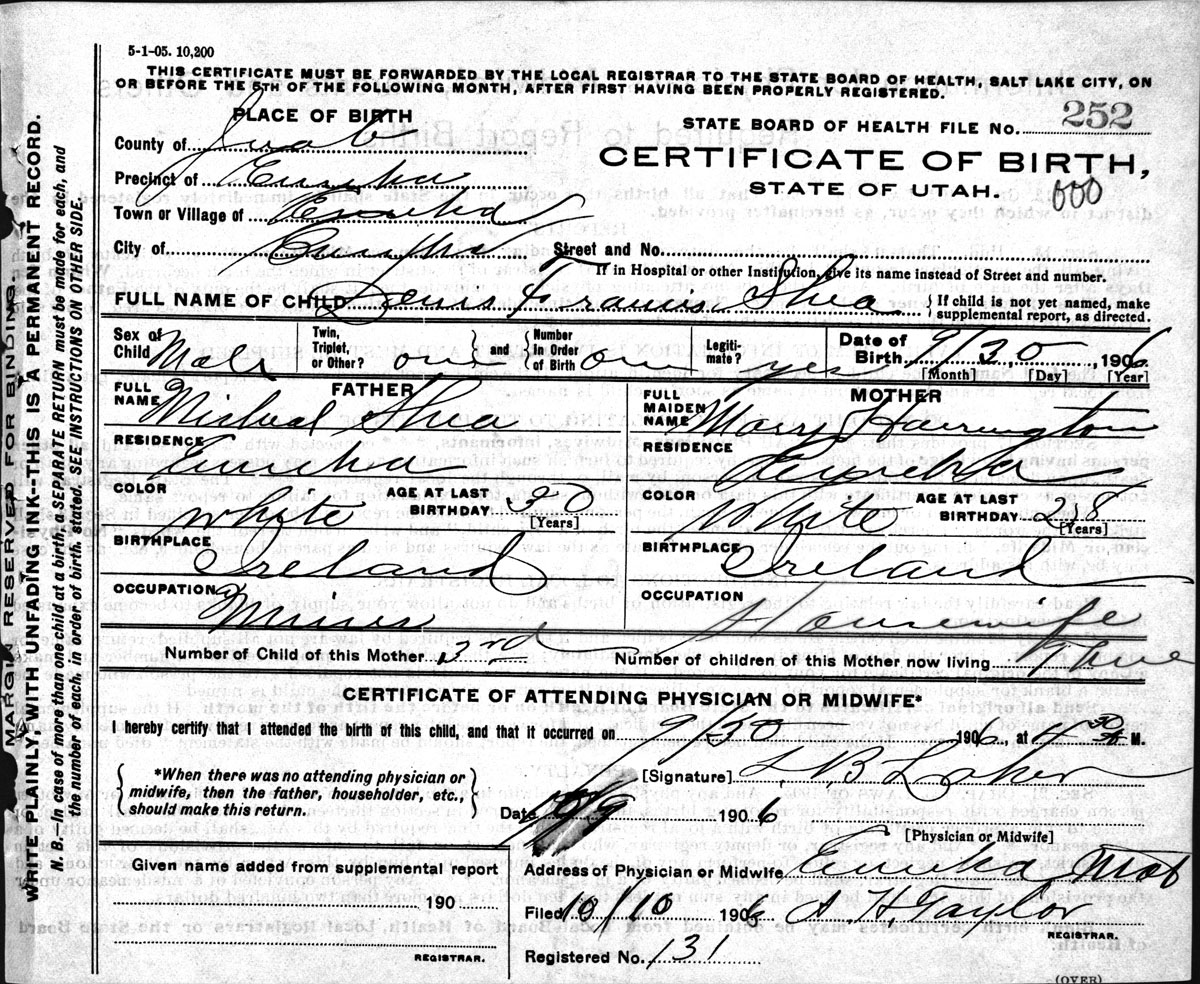 5-1-05. 10,200
THIS CERTIFICATE MUST BE FORWARDED BY THE LOCAL REGISTRAR TO THE STATE BOARD OF HEALTH, SALT LAKE CITY, ON
OR BEFORE THE 5TH OF THE FOLLOWING MONTH, AFTER FIRST HAVING BEEN PROPERLY REGISTERED.
PLACE OF BIRTH
STATE BOARD OF HEALTH FILE NO. 252
County of Juab
CERTIFICATE OF BIRTH,
Precinct of Eureka
STATE OF UTAH. 000
Town or Village of Eureka
City of Eureka Street and No.
If in Hospital or other Institution, give its name instead of Street and number.
FULL NAME OF CHILD Denis Francis Shea { If child is not yet named, make supplemental report, as directed.
Sex of Child Male Twin, Triplet, or Other? or } and { Number in Order of Birth on Legiti- mate? yes Date of Birth 9/30, 1906
[Month] [Day] [Year]
FATHER
FULL NAME Micheal Shea
RESIDENCE
Eureka
COLOR White AGE AT LAST BIRTHDAY
[Years]
BIRTHPLACE
Ireland
OCCUPATION
Miner
MOTHER
FULL MAIDEN NAME Mary Harrington
RESIDENCE
Eureka
COLOR White AGE AT LAST BIRTHDAY 28
[Years]
BIRTHPLACE
Ireland
OCCUPATION
Housewife
Number of Child of this Mother 3rd Number of children of this Mother now living
CERTIFICATE OF ATTENDING PHYSICIAN OR MIDWIFE*
I hereby certify that I attended the birth of this child, and that it occurred on 9/30 1906, at 4 30 A M.
{ *When there was no attending physician or midwife, then the father, householder, etc., should make this return. }
[Signature] L B Laker
Date 10/9 1906
[Physician or Midwife]
Given name added from supplemental report
Address of Physician or Midwife Eureka
190
Filed 10/10 1906 H. Taylor
REGISTRAR.
REGISTRAR.
Registered No. 131
(OVER)
MARGIN RESERVED FOR BINDING.
WRITE PLAINLY, WITH UNFADING INK--THIS IS A PERMANENT RECORD.
N. B. In case of more than one child at a birth, a SEPARATE RETURN must be made for each, and
the number of each, in order of birth, stated. SEE INSTRUCTIONS ON OTHER SIDE.